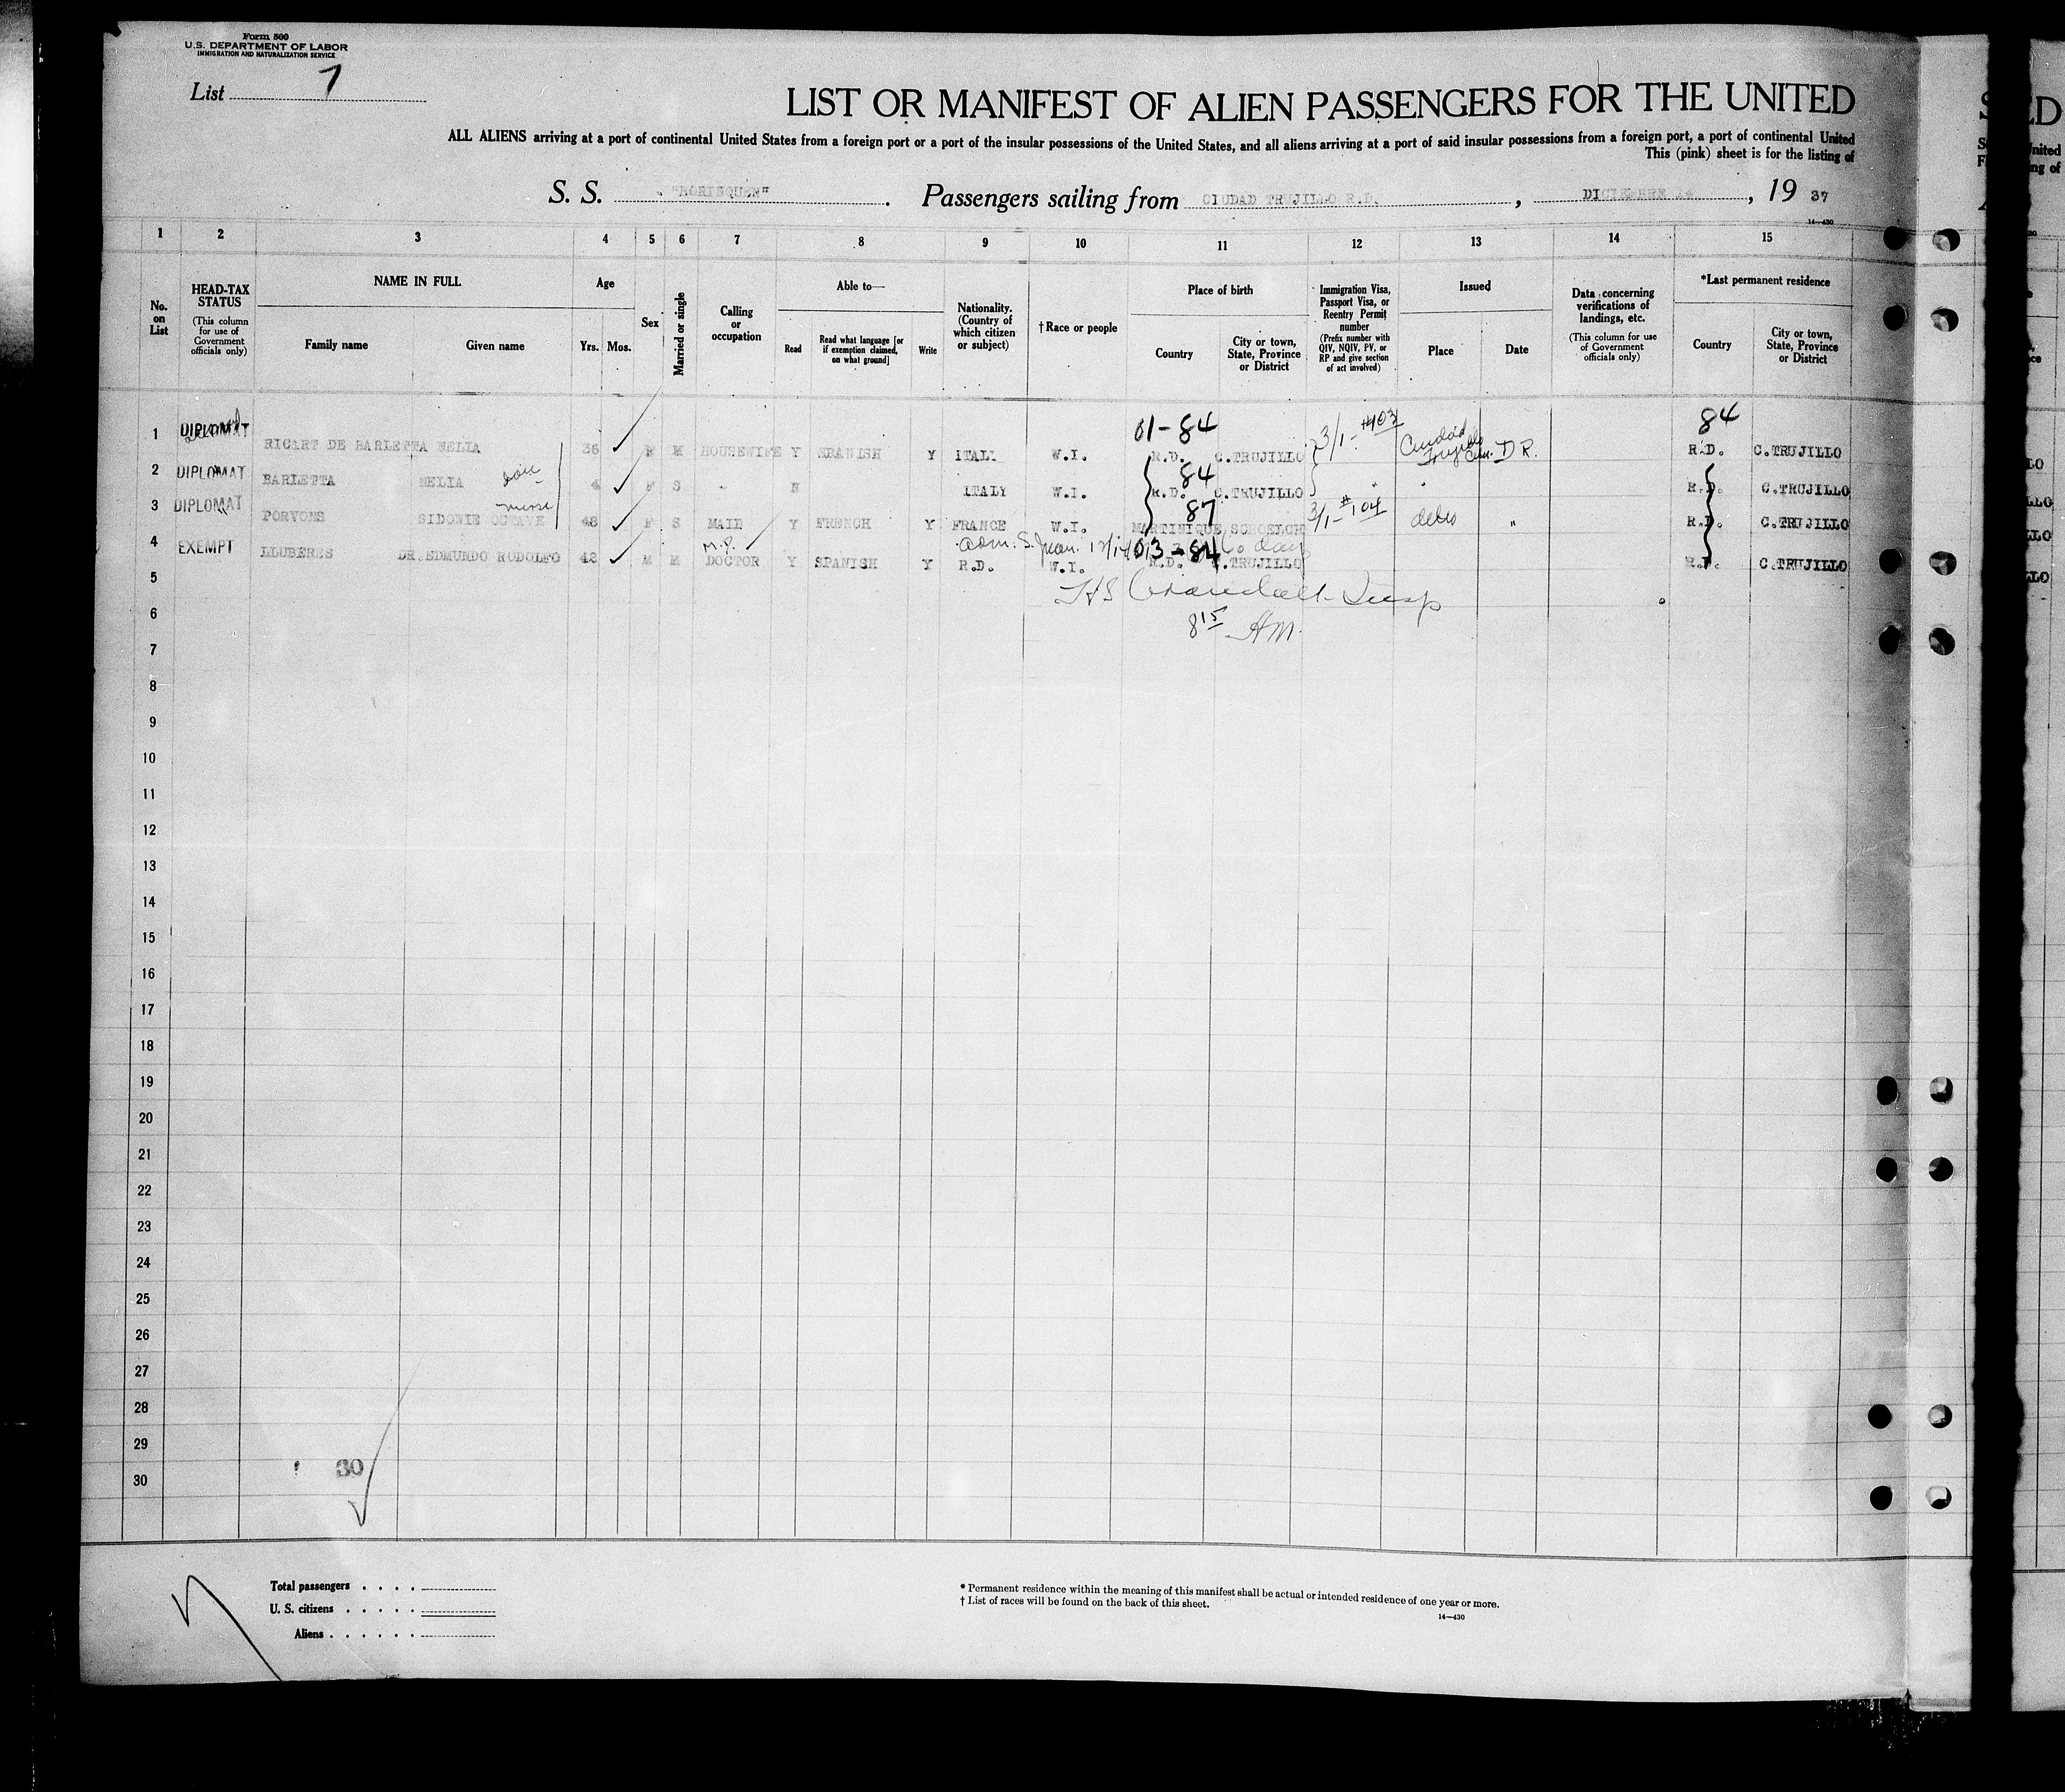 Form 500
U.S. DEPARTMENT OF LABOR
IMMIGRATION AND NATURALIZATION SERVICE
List 7
LIST OR MANIFEST OF ALIEN PASSENGERS FOR THE UNITED
ALL ALIENS arriving at a port of continental United States from a foreign port or a port of the insular possessions of the United States, and all aliens arriving at a port of said insular possessions from a foreign port, a port of continental United
This (pink) sheet is for the listing of
S. S. "BORINQUEN". Passengers sailing from CIUDAD TRUJILLO R.D., DICIEMBRE 14, 19 37
14-430
1 2 3 4 5 6 7 8 9 10 11 12 13 14 15
No. on List
HEAD-TAX STATUS
(This column for use of Government officials only)
NAME IN FULL
Family name
Given name
Age
Yrs. Mos.
Sex
Married or single
Calling or occupation
Able to—
Read
Read what language [or if exemption claimed, on what ground]
Write
Nationality. (Country of which citizen or subject)
†Race or people
Place of birth
Country
City or town, State, Province or District
Immigration Visa, Passport Visa, or Reentry Permit number
(Prefix number with QIV, NQIV, PV, or RP and give section of act involved)
Issued
Place
Date
Data concerning verifications of landings, etc.
(This column for use of Government officials only)
*Last permanent residence
Country
City or town, State, Province or District
01-84 3/1-#103 84
1 DIPLOMAT RICART DE BARLETTA NELIA 36 F M HOUSEWIFE Y SPANISH Y ITALY W.I. R.D. C.TRUJILLO Ciudad Trujillo D.R. R.D. C.TRUJILLO
84
2 DIPLOMAT BARLETTA NELIA 4 F S - N ITALY W.I. R.D. C.TRUJILLO " " R.D. C.TRUJILLO
nurse 87 3/1-#104
3 DIPLOMAT PORVONS SIDONIE OCTAVE 48 F S MAID Y FRENCH Y FRANCE W.I. MARTINIQUE SCHOELCH " R.D. C.TRUJILLO
M.D. adm. S. Juan. 03-84 60 days
4 EXEMPT LLUBERES DR.EDMUNDO RODOLFO 42 M M DOCTOR Y SPANISH Y R.D. W.I. R.D. C.TRUJILLO R.D. C.TRUJILLO
5
Insp
6
8 15 AM.
7
8
9
10
11
12
13
14
15
16
17
18
19
20
21
22
23
24
25
26
27
28
29
30
30
Total passengers . . . .
U. S. citizens . . . . .
Aliens . . . . . .
* Permanent residence within the meaning of this manifest shall be actual or intended residence of one year or more.
† List of races will be found on the back of this sheet.
14—430